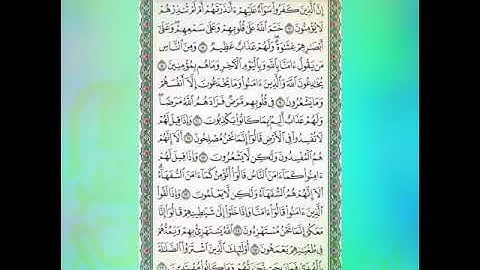 إِنَّ ٱلَّذِينَ كَفَرُوا۟ سَوَآءٌ عَلَيْهِمْ ءَأَنذَرْتَهُمْ أَمْ لَمْ تُنذِرْهُمْ
لَا يُؤْمِنُونَ ٦ خَتَمَ ٱللَّهُ عَلَىٰ قُلُوبِهِمْ وَعَلَىٰ سَمْعِهِمْ وَعَلَىٰٓ
أَبْصَٰرِهِمْ غِشَٰوَةٌ وَلَهُمْ عَذَابٌ عَظِيمٌ ٧ وَمِنَ ٱلنَّاسِ
مَن يَقُولُ ءَامَنَّا بِٱللَّهِ وَبِٱلْيَوْمِ ٱلْءَاخِرِ وَمَا هُم بِمُؤْمِنِينَ ٨
يُخَٰدِعُونَ ٱللَّهَ وَٱلَّذِينَ ءَامَنُوا۟ وَمَا يَخْدَعُونَ إِلَّآ أَنفُسَهُمْ
وَمَا يَشْعُرُونَ ٩ فِى قُلُوبِهِم مَّرَضٌ فَزَادَهُمُ ٱللَّهُ مَرَضًا
وَلَهُمْ عَذَابٌ أَلِيمٌۢ بِمَا كَانُوا۟ يَكْذِبُونَ ١٠ وَإِذَا قِيلَ لَهُمْ
لَا تُفْسِدُوا۟ فِى ٱلْأَرْضِ قَالُوٓا۟ إِنَّمَا نَحْنُ مُصْلِحُونَ ١١ أَلَآ إِنَّهُمْ
هُمُ ٱلْمُفْسِدُونَ وَلَٰكِن لَّا يَشْعُرُونَ ١٢ وَإِذَا قِيلَ لَهُمْ
ءَامِنُوا۟ كَمَآ ءَامَنَ ٱلنَّاسُ قَالُوٓا۟ أَنُؤْمِنُ كَمَآ ءَامَنَ ٱلسُّفَهَآءُ
أَلَآ إِنَّهُمْ هُمُ ٱلسُّفَهَآءُ وَلَٰكِن لَّا يَعْلَمُونَ ١٣ وَإِذَا لَقُوا۟
ٱلَّذِينَ ءَامَنُوا۟ قَالُوٓا۟ ءَامَنَّا وَإِذَا خَلَوْا۟ إِلَىٰ شَيَٰطِينِهِمْ قَالُوٓا۟ إِنَّا
مَعَكُمْ إِنَّمَا نَحْنُ مُسْتَهْزِءُونَ ١٤ ٱللَّهُ يَسْتَهْزِئُ بِهِمْ وَيَمُدُّهُمْ
فِى طُغْيَٰنِهِمْ يَعْمَهُونَ ١٥ أُو۟لَٰٓئِكَ ٱلَّذِينَ ٱشْتَرَوُا۟ ٱلضَّلَٰلَةَ
بِٱلْهُدَىٰ فَمَا رَبِحَت تِّجَٰرَتُهُمْ وَمَا كَانُوا۟ مُهْتَدِينَ ١٦